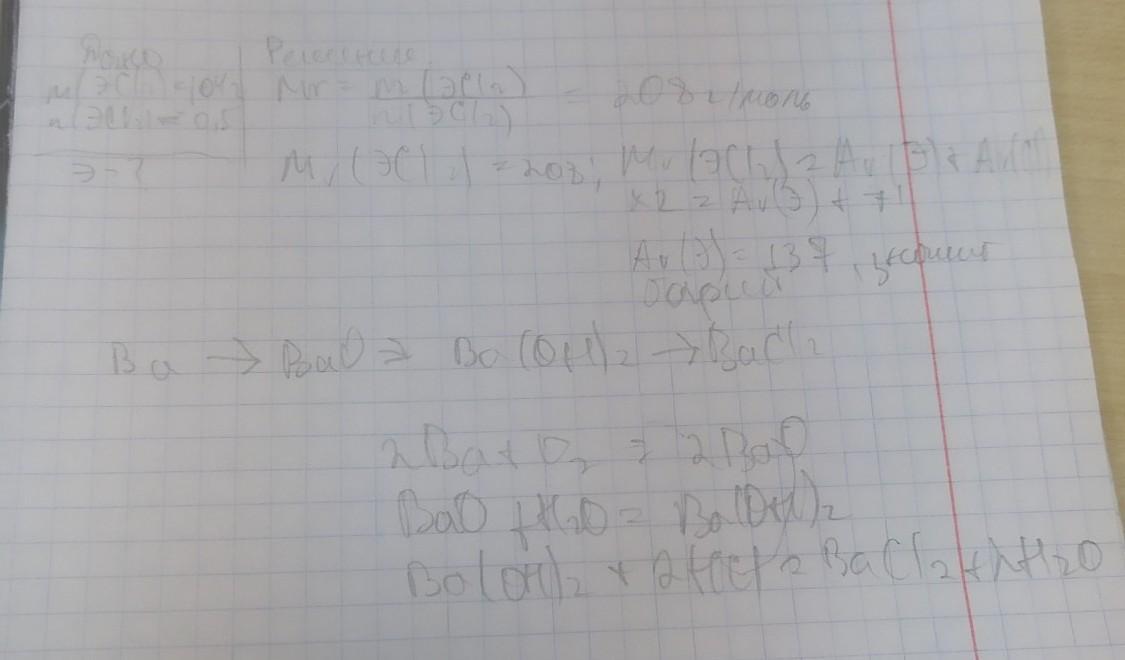 Дано
Решение
m(ЭCl2)=104
n(ЭCl2)=0,5
Э-?
Mr = m(ЭCl2) / n(ЭCl2) = 208 г/моль
Mr(ЭCl2) = 208; Mr(ЭCl2) = Ar(Э) + Ar(Cl)
×2 = Ar(Э) + 71
Ar(Э) = 137,
барий
Ba → BaO → Ba(OH)2 → BaCl2
2Ba + O2 = 2BaO
BaO + H2O = Ba(OH)2
Ba(OH)2 + 2HCl = BaCl2 + 2H2O